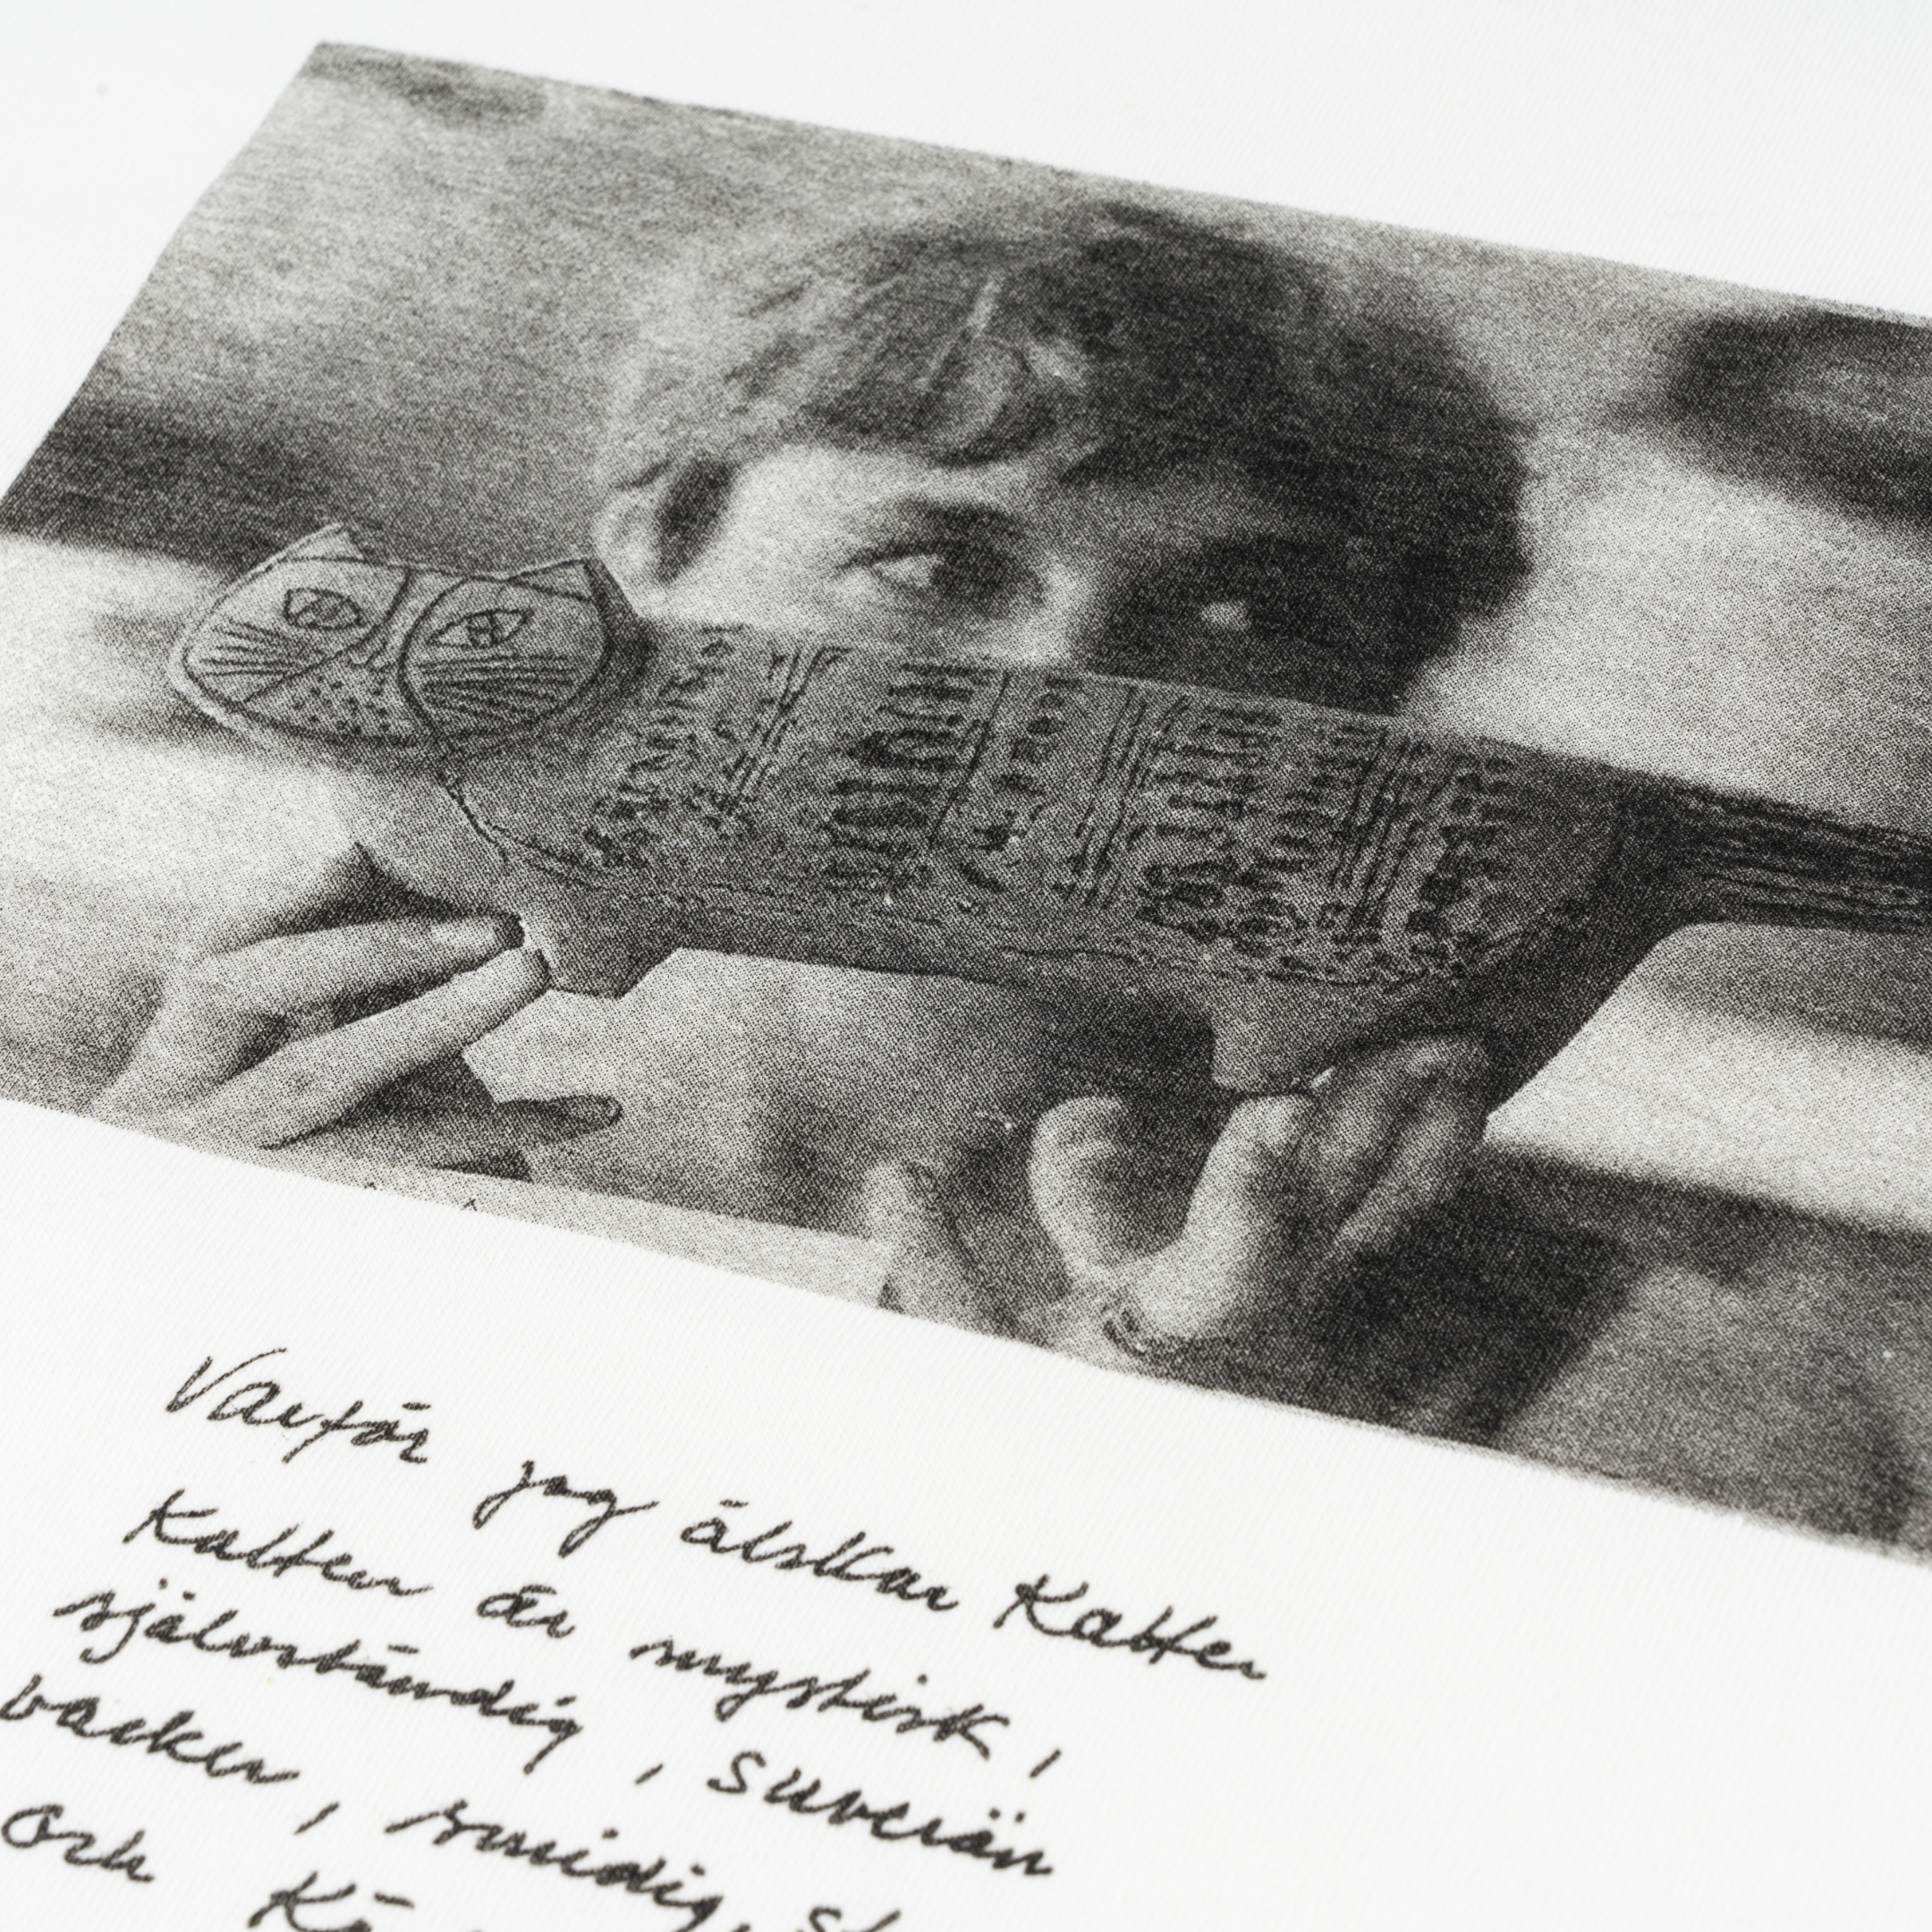 Varför jag älskar Katter
Katten är mystisk,
självständig, suverän
vacker, smidig,
och